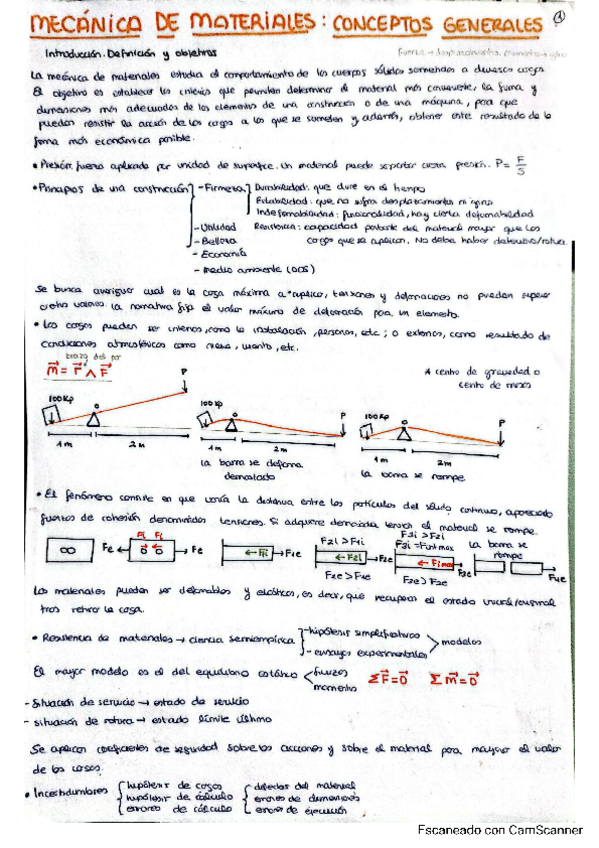 MECÁNICA DE MATERIALES: CONCEPTOS GENERALES 1
Introducción. Definición y objetivos
La mecánica de materiales estudia el comportamiento de los cuerpos sólidos sometidos a diversas cargas
El objetivo es establecer los criterios que permitan determinar el material más conveniente, la forma y
dimensiones más adecuados de los elementos de una construcción o de una máquina, para que
puedan resistir la acción de las cargas a las que se someten y además, obtener este resultado de la
forma más económica posible.
• Presión: fuerza aplicada por unidad de superficie. Un material puede soportar cierta presión. P = F/S
• Principios de una construcción - Firmeza Durabilidad: que dure en el tiempo
Estabilidad: que no sufra desplazamientos ni giros
Indeformabilidad: funcionalidad, hay cierta deformabilidad
- Utilidad Resistencia: capacidad portante del material mayor que las
- Belleza cargas que se aplican. No debe haber
- Economía
- medio ambiente (ODS)
Se busca averiguar cual es la carga máxima a aplicar, tensiones y deformaciones no pueden superar
cierto valores. La normativa fija el valor máximo de deformación para un elemento.
• Las cargas pueden ser internas, como la instalación, personas, etc.; o externas, como resultado de
condiciones atmosféricas como nieve, viento, etc.
brazo del par
M = r ∧ F
A centro de gravedad o
centro de masas
100kp O P
1m 2m
100kp O P
1m 2m
La barra se deforma
demasiado
100kp O P
1m 2m
La barra se rompe
• El fenómeno consiste en que varía la distancia entre las partículas del sólido continuo, apareciendo
fuerzas de cohesión denominadas tensiones. Si adquiere demasiada tensión el material se rompe.
Fi Fi F2i > F1i F3i > F2i
F3i = Fint max La barra se
rompe
∞ Fe Fe F1i F1e F2i F2e Fimax F3e F4e
F2e > F1e F3e > F2e
Los materiales pueden ser deformables y elásticos, es decir, que recuperan el estado inicial/original
tras retirar la carga.
• Resistencia de materiales → ciencia semiempírica - hipótesis simplificativas
- ensayos experimentales modelos
El mayor modelo es el del equilibrio estático fuerzas
momentos ΣF=0 ΣM=0
- Situación de servicio → estado de servicio
- situación de rotura → estado límite último
Se aplican coeficientes de seguridad sobre las acciones y sobre el material para mayorar el valor
de las cosas.
• Incertidumbres hipótesis de cargas defectos del material
hipótesis de cálculo errores de dimensiones
errores de cálculo errores de ejecución
Escaneado con CamScanner